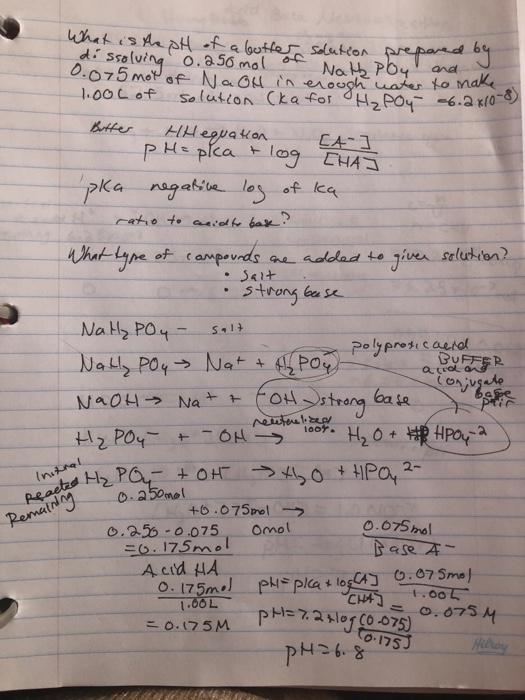 What is the pH of a buffer solution prepared by
dissolving 0.250 mol of NaH2PO4 and
0.075 mol of NaOH in enough water to make
1.00L of solution (ka for H2PO4⁻ = 6.2x10⁻⁸)
Buffer HH equation
pH = pka + log [A-] / [HA]
pKa negative log of ka
ratio to acid to base?
What type of compounds are added to given solution?
• Salt
• strong base
NaH2PO4 - salt
polyprotic acid
NaH2PO4 → Na+ + H2PO4⁻
BUFFER
acid and
conjugate
base
pair
NaOH → Na+ + ⁻OH → strong base
neutralized
100%
H2PO4⁻ + ⁻OH → H2O + HPO4⁻²
Initial
Reacted
Remaining
H2PO4⁻ + OH⁻ → H2O + HPO4²⁻
0.250mol
+0.075mol →
0.250 - 0.075 0mol 0.075mol
= 0.175mol Base A⁻
Acid HA
0.175mol / 1.00L
= 0.175M
pH = pka + log [A] / [HA]
0.075mol / 1.00L
= 0.075M
pH = 7.2 + log (0.075) / [0.175]
pH = 6.8
Hilroy